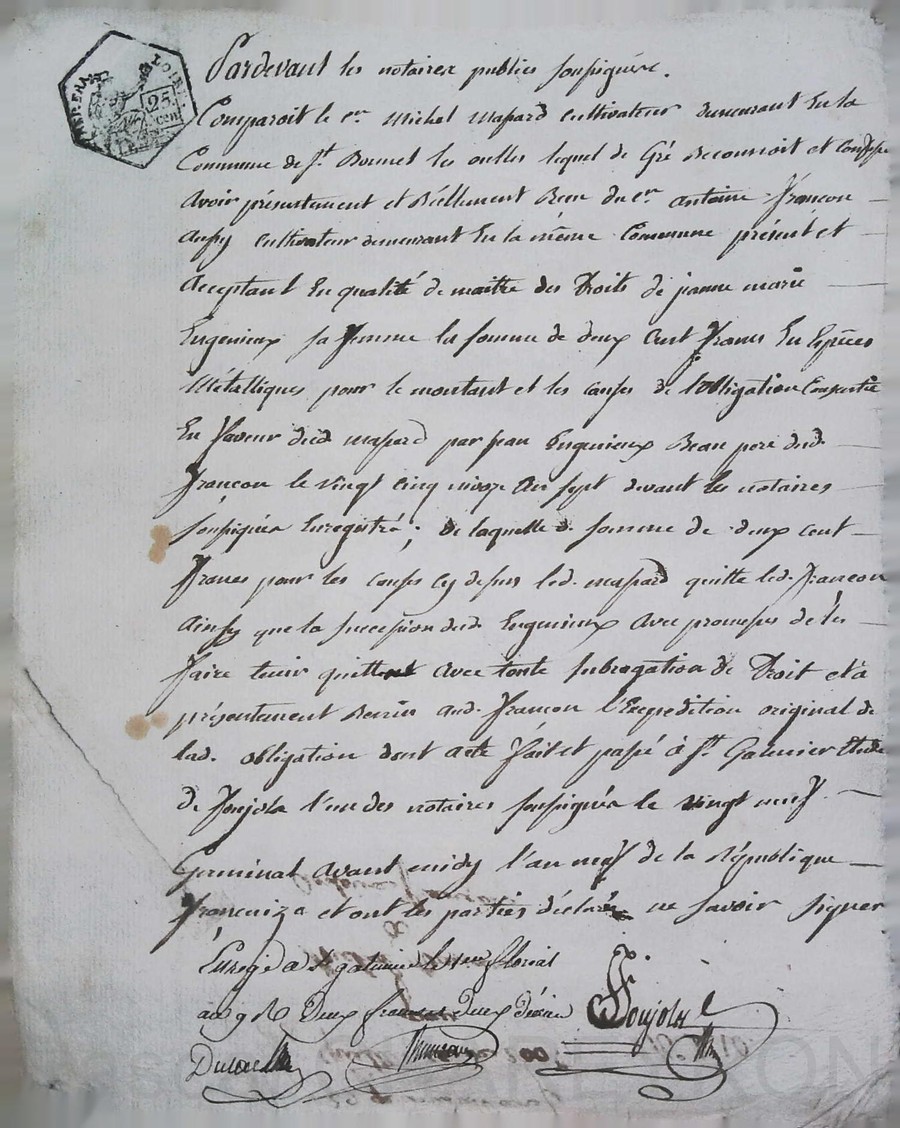 LOIRE
25
CEN
Pardevant les notaires publics soussignés.
Comparoit le cen Michel Massard cultivateur demeurant En la
Commune de St. Bonnet les oulles lequel de Gré Reconnoit et Confesse
Avoir présentement et Réellement Recu du cen antoine françon
Aussy cultivateur demeurant En la même Commune présent et
Acceptant En qualité de maitre des Droits de jeanne marie
Enjenieux sa femme la somme de deux Cent francs En Espèces
Métalliques pour le montant et les causes de l'obligation Consentie
En faveur dud. massard par jean Enjenieux Beau pere dud.
françon le vingt cinq nivose an sept devant les notaires
soussignés Enregistré; de laquelle d. somme de deux cent
francs pour les causes cy dessus led. massard quitte led. francon
ainsy que la succession dud. Enjenieux avec promesse de les
faire tenir quittes avec toute subrogation de Droit et à
présentement Remis aud. francon l'Expedition original de
lad. obligation dont acte fait et passé à St. Galmier Etude
de fonjols l'un des notaires soussignés le vingt neuf
Germinal avant midy l'an neuf de la République
françaize et ont les parties déclaré ne savoir signer
Enregé a St galmier le 1er floreal
an 9 Rc Deux francs Deux décime
fonjols